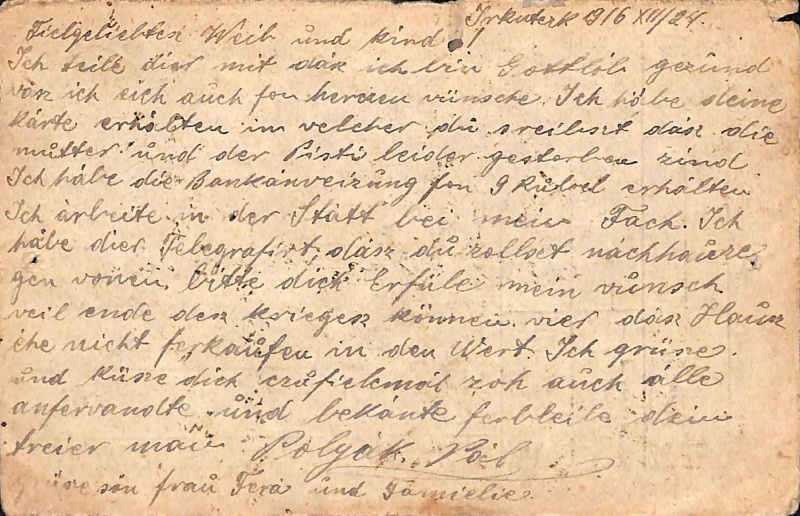 Irkutszk 916 XII/24.
Fielgeliebtes Weib und kind!
Ich teile dier mit dasz ich bin Gottlob gezund
vasz ich eich auch fon herzen vünsche. Ich habe deine
kárte erhálten in velcher du sreibszt dász die
mutter und der Pisti leider gestorben zind
Ich hábe die Bankánveizung fon 9 Rubel erhálten
Ich árbeite in der Statt bei mein Fach. Ich
hábe dier Telegrafirt, dász du zollszt nachhausze
gen vonen, bitte dich Erfüle mein vunsch
veil ende desz kriegesz können vier dasz Hausz
ehe nicht ferkaufen in den Wert. Ich grüsze
und küsze dich czufielemál zoh auch álle
anfervandte und bekánte ferbleibe dein
treier mán Polyák Pál
frau Terá und Familie.